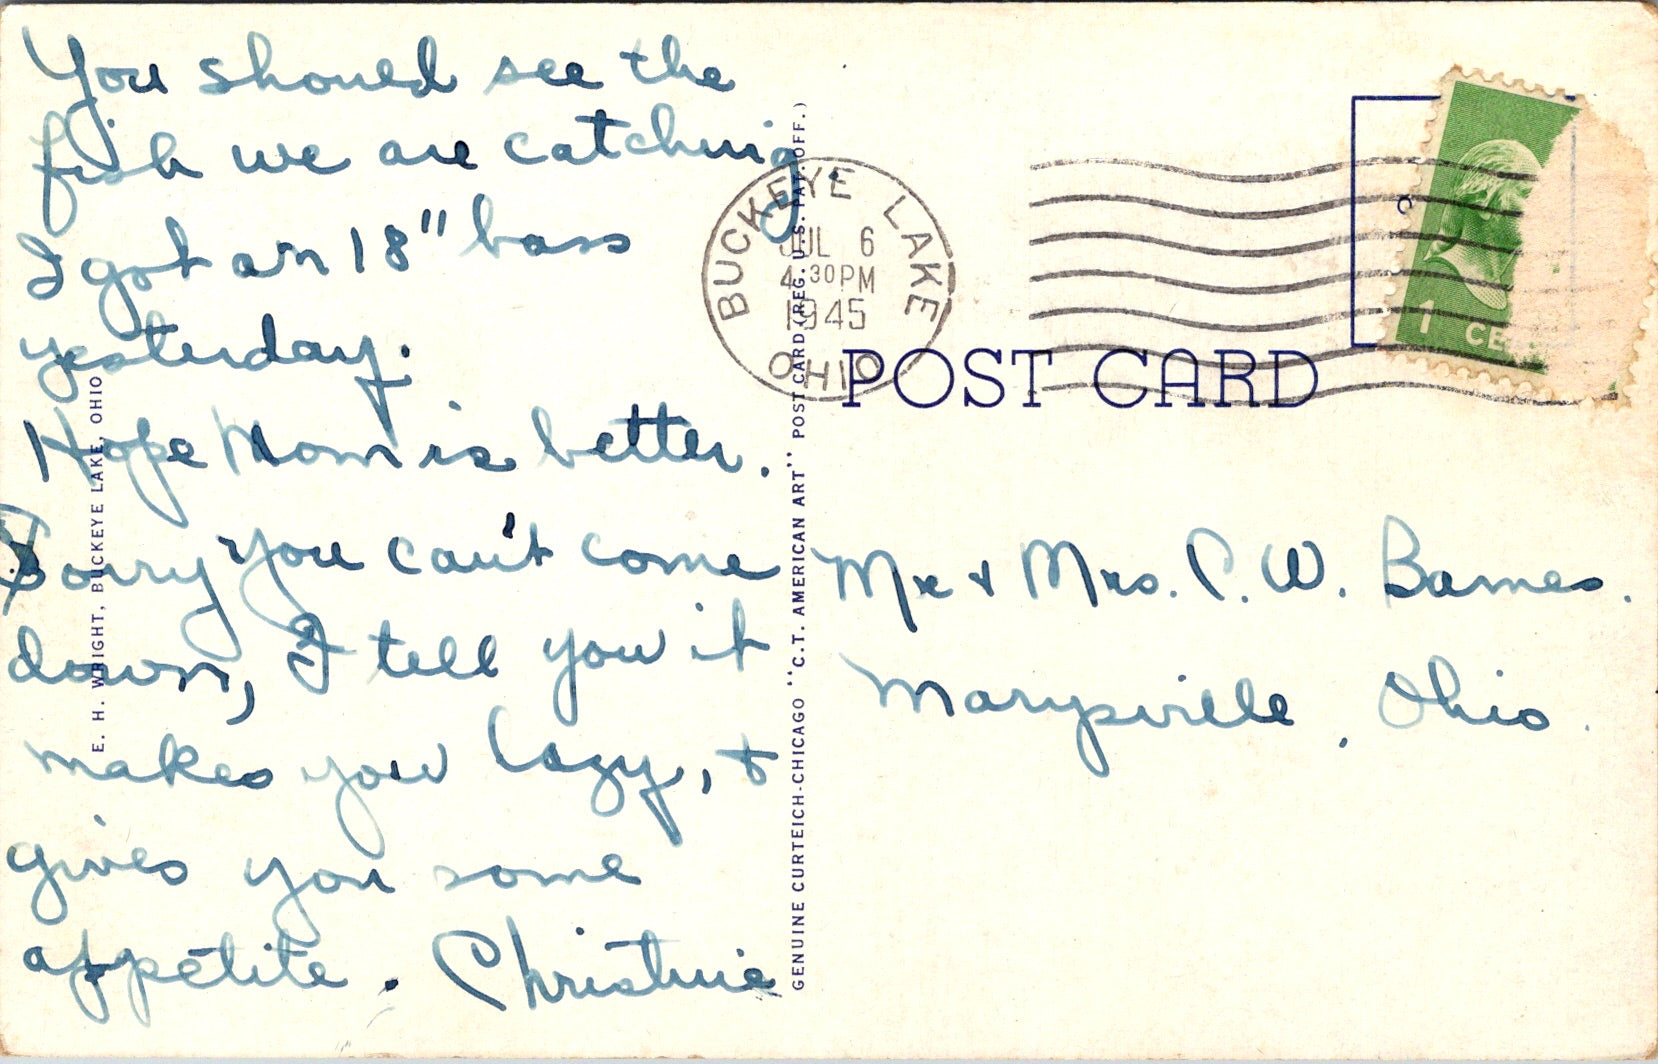 You should see the
fish we are catching.
I got an 18" bass
yesterday.
Hope Mom is better.
Sorry you can't come
down, I tell you it
makes you lazy, &
gives you some
appetite. Christine
E. H. WRIGHT, BUCKEYE LAKE, OHIO
GENUINE CURTEICH-CHICAGO "C.T. AMERICAN ART" POST CARD (REG. U.S. PAT. OFF.)
BUCKEYE LAKE
JUL 6
4:30PM
1945
OHIO
1 CE
POST CARD
Mr & Mrs. C. W. Barnes.
Marysville, Ohio.